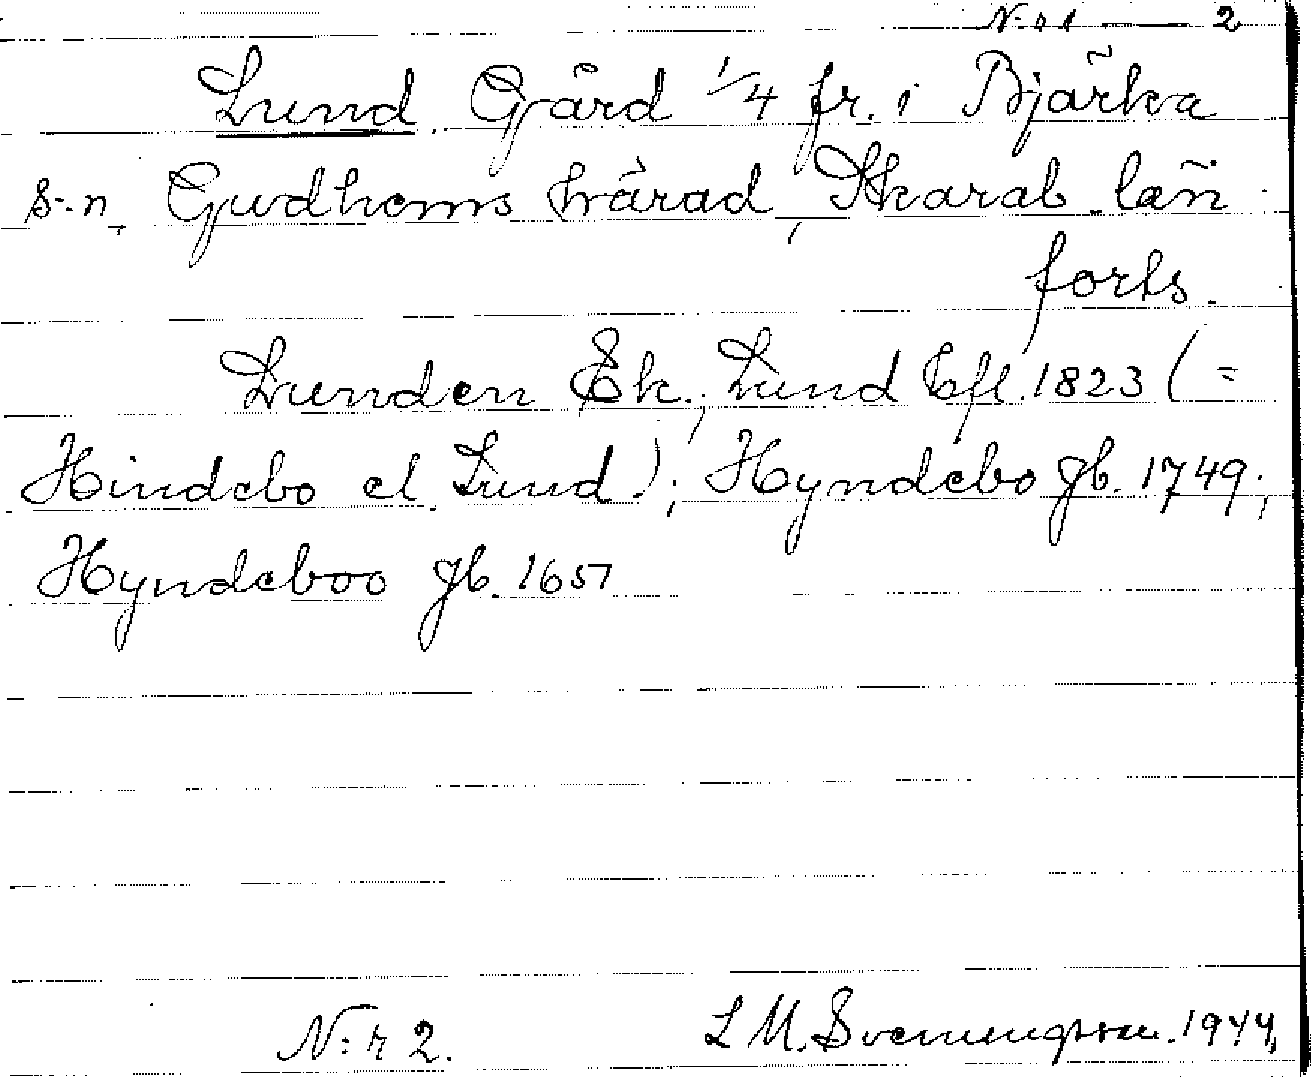 N:r 1 — 2
Lund. Gård 1/4 fr. i Bjärka
s-n, Gudhems härad, Skarab. län
forts.
Lunden Ek.; Lund Efl. 1823 (=
Hindebo el. Lund); Hyndebo gb. 1749;
Hyndeboo gb. 1651
N:r 2. L M. Svenungsson. 1944.